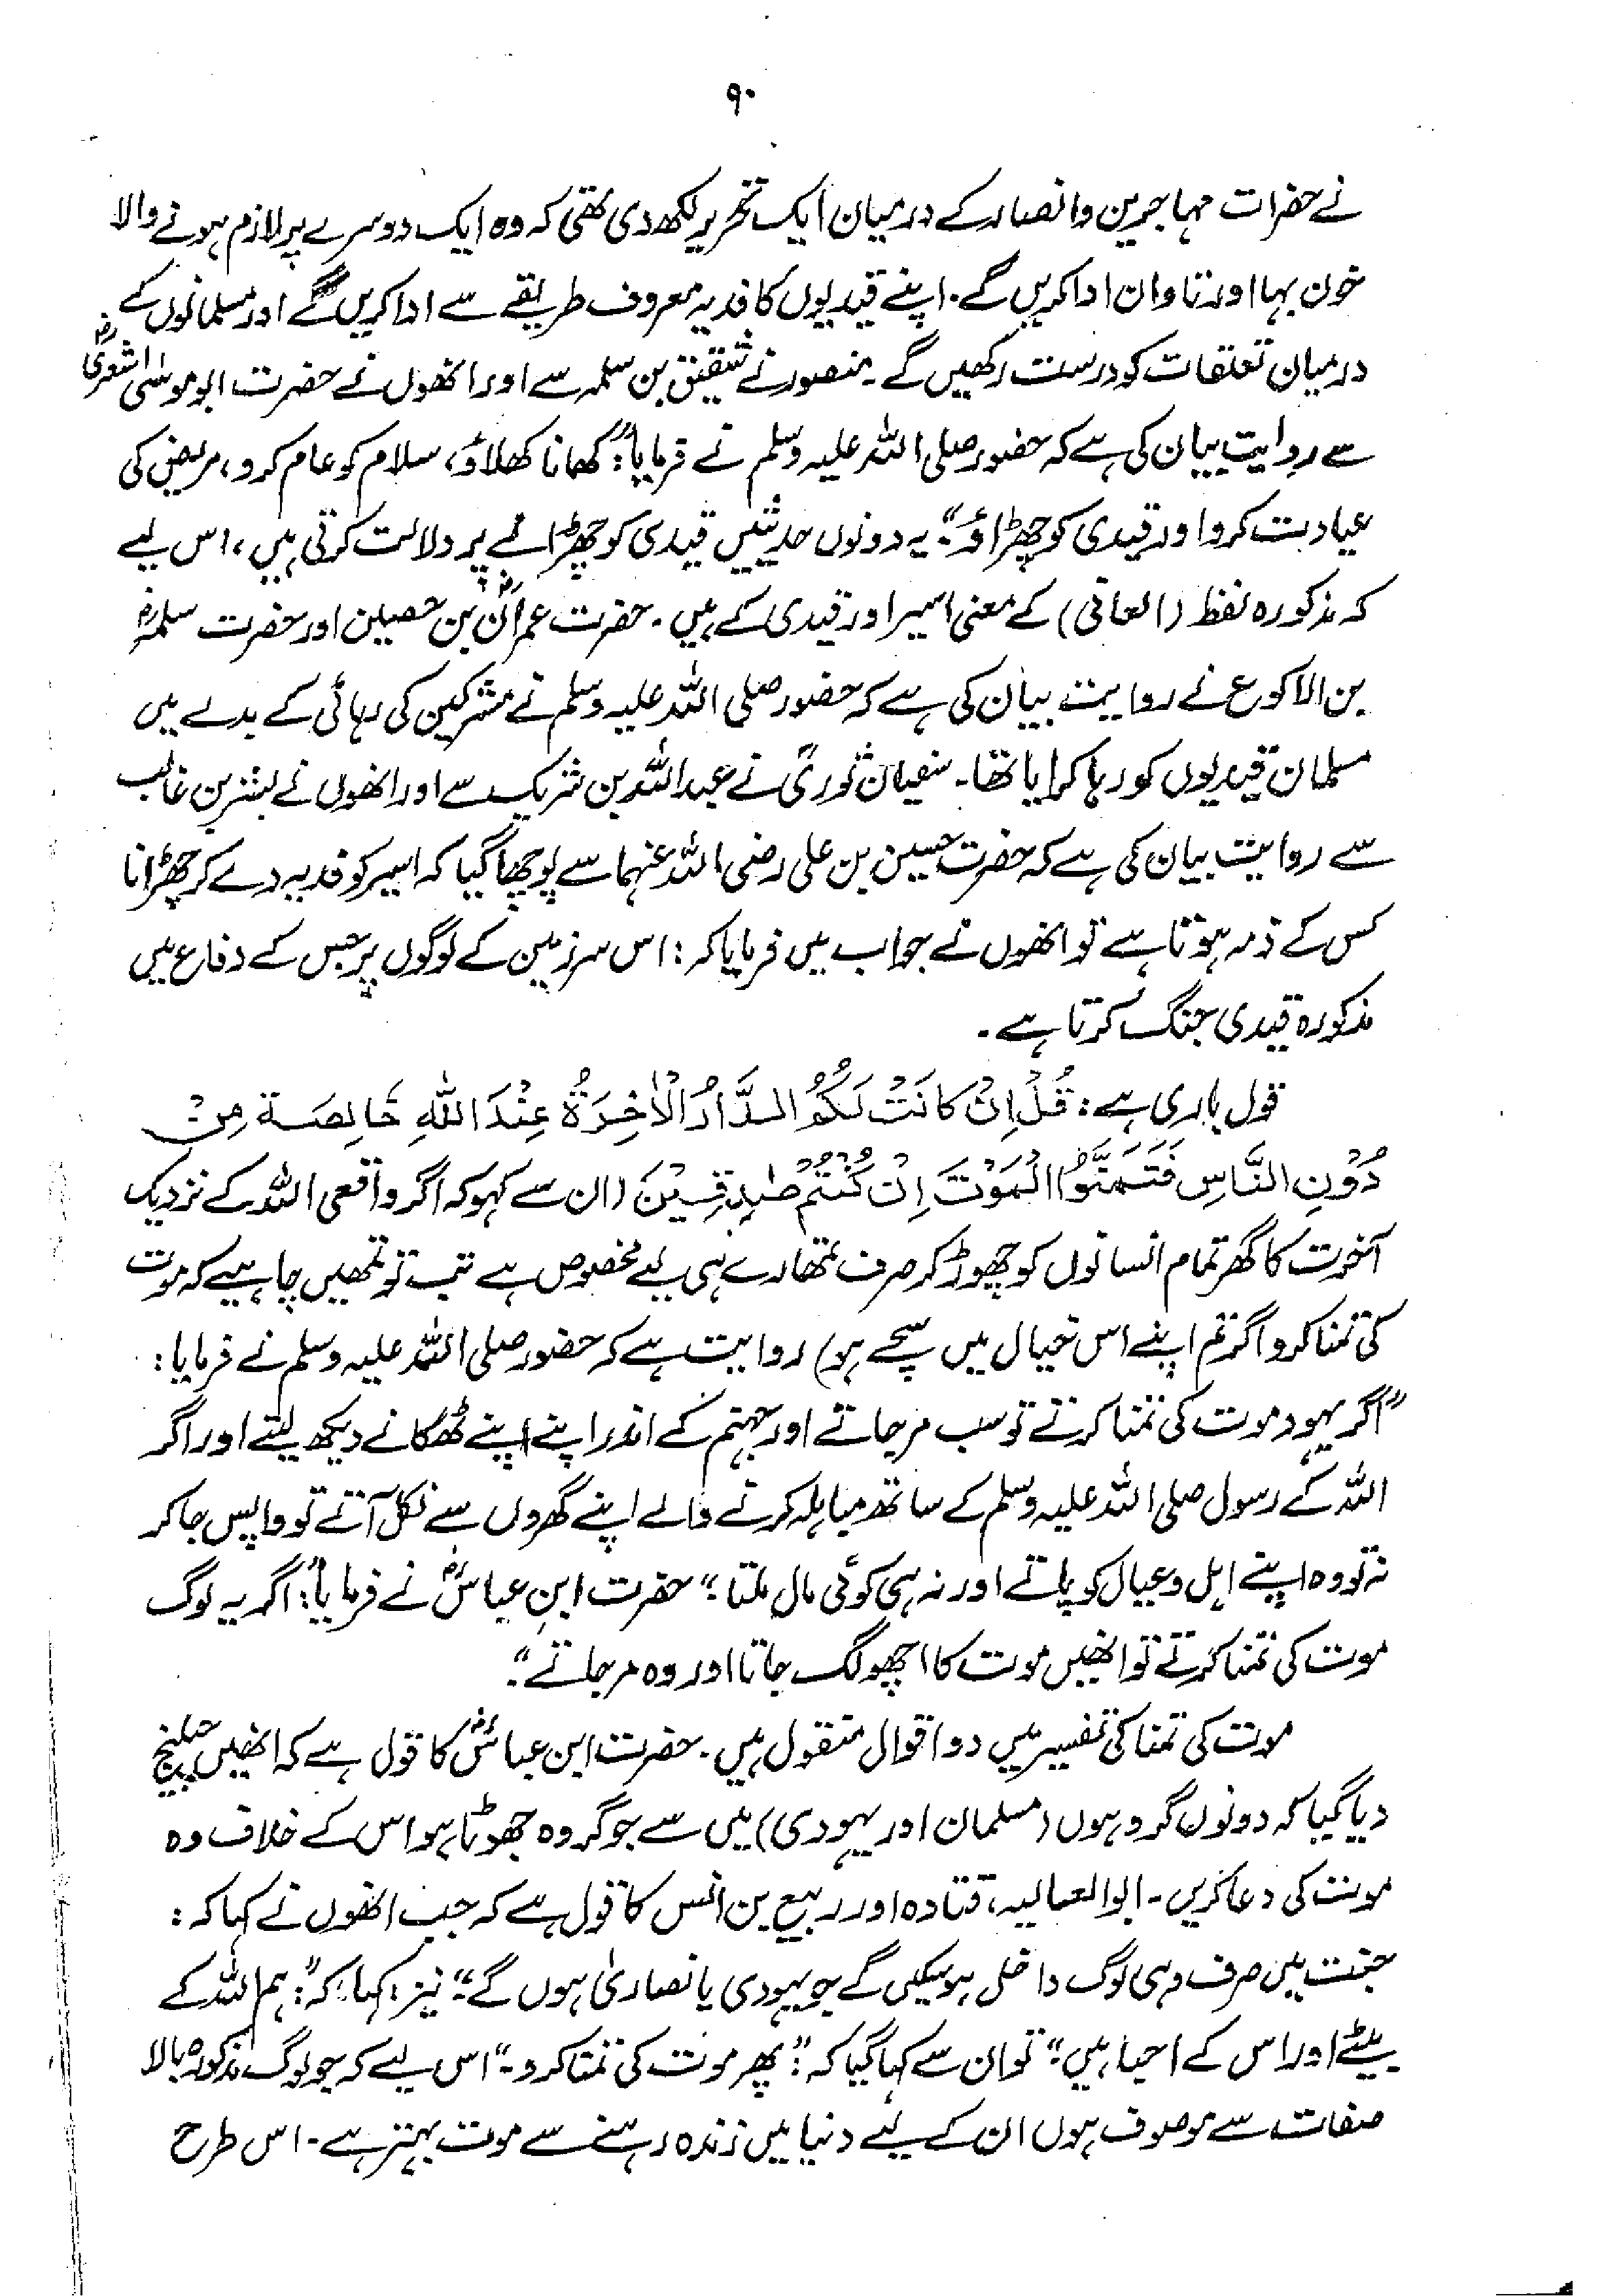 ۹۰
نے حضرات مہاجرین و انصار کے درمیان ایک تحریر لکھ دی تھی کہ وہ ایک دوسرے پر لازم ہونے والا
خون بہا اور تاوان ادا کریں گے۔ اپنے قیدیوں کا فدیہ معروف طریقے سے ادا کریں گے اور مسلمانوں کے
درمیان تعلقات کو درست رکھیں گے۔ منصور نے شقیق بن سلمہ سے اور انھوں نے حضرت ابو موسٰی اشعریؓ
سے روایت بیان کی ہے کہ حضور صلی اللہ علیہ وسلم نے فرمایا: "کھانا کھلاؤ، سلام کو عام کرو، مریض کی
عیادت کرو اور قیدی کو چھڑاؤ۔" یہ دونوں حدیثیں قیدی کو چھڑانے پر دلالت کرتی ہیں، اس لیے
کہ مذکورہ لفظ (العانی) کے معنی اسیر اور قیدی کے ہیں۔ حضرت عمرانؓ بن حصین اور حضرت سلمہؓ
بن الاکوع نے روایت بیان کی ہے کہ حضور صلی اللہ علیہ وسلم نے مشرکین کی رہائی کے بدلے میں
مسلمان قیدیوں کو رہا کرایا تھا۔ سفیان ثوریؒ نے عبداللہ بن شریک سے اور انھوں نے بشر بن غالب
سے روایت بیان کی ہے کہ حضرت حسین بن علی رضی اللہ عنہما سے پوچھا گیا کہ اسیر کو فدیہ دے کر چھڑانا
کس کے ذمہ ہوتا ہے تو انھوں نے جواب میں فرمایا کہ: اس سرزمین کے لوگوں پر جس کے دفاع میں
مذکورہ قیدی جنگ کرتا ہے۔
قول باری ہے: قُلْ اِنْ كَانَتْ لَكُمُ الدَّارُ الْاٰخِرَةُ عِنْدَ اللّٰهِ خَالِصَة مِنْ
دُوْنِ النَّاسِ فَتَمَنَّوُا الْمَوْتَ اِنْ كُنْتُمْ صٰدِقِيْنَ (ان سے کہو کہ اگر واقعی اللہ کے نزدیک
آخرت کا گھر تمام انسانوں کو چھوڑ کر صرف تمھارے ہی لیے مخصوص ہے تب تو تمھیں چاہیے کہ موت
کی تمنا کرو اگر تم اپنے اس خیال میں سچے ہو) روایت ہے کہ حضور صلی اللہ علیہ وسلم نے فرمایا:
"اگر یہود موت کی تمنا کرتے تو سب مرجاتے اور جہنم کے اندر اپنے اپنے ٹھکانے دیکھ لیتے اور اگر
اللہ کے رسول صلی اللہ علیہ وسلم کے ساتھ مباہلہ کرنے والے اپنے گھروں سے نکل آتے تو واپس جا کر
نہ تو وہ اپنے اہل و عیال کو پاتے اور نہ ہی کوئی مال ملتا۔" حضرت ابن عباسؓ نے فرمایا: "اگر یہ لوگ
موت کی تمنا کرتے تو انھیں موت کا اچھو لگ جاتا اور وہ مرجاتے۔"
موت کی تمنا کی تفسیر میں دو اقوال منقول ہیں۔ حضرت ابن عباسؓ کا قول ہے کہ انھیں چیلنج
دیا گیا کہ دونوں گروہوں (مسلمان اور یہودی) میں سے جو گروہ جھوٹا ہو اس کے خلاف وہ
موت کی دعا کریں۔ ابوالعالیہ، قتادہ اور ربیع بن انس کا قول ہے کہ جب انھوں نے کہا کہ:
جنت میں صرف وہی لوگ داخل ہوسکیں گے جو یہودی یا نصاریٰ ہوں گے۔" نیز کہا کہ: "ہم اللہ کے
بیٹے اور اس کے احبا ہیں۔" تو ان سے کہا گیا کہ: "پھر موت کی تمنا کرو۔" اس لیے کہ جو لوگ مذکورہ بالا
صفات سے موصوف ہوں ان کے لیے دنیا میں زندہ رہنے سے موت بہتر ہے۔ اس طرح